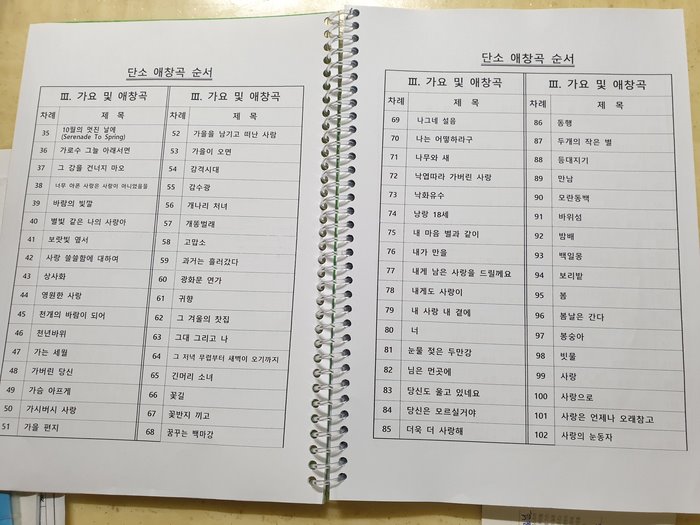 단소 애창곡 순서
Ⅲ. 가요 및 애창곡
차례 제 목
35 10월의 멋진 날에
(Serenade To Spring)
36 가로수 그늘 아래서면
37 그 강을 건너지 마오
38 너무 아픈 사랑은 사랑이 아니었음을
39 바람의 빛깔
40 별빛 같은 나의 사랑아
41 보랏빛 엽서
42 사랑 쓸쓸함에 대하여
43 상사화
44 영원한 사랑
45 천개의 바람이 되어
46 천년바위
47 가는 세월
48 가버린 당신
49 가슴 아프게
50 가시버시 사랑
51 가을 편지
Ⅲ. 가요 및 애창곡
차례 제 목
52 가을을 남기고 떠난 사랑
53 가을이 오면
54 감격시대
55 감수광
56 개나리 처녀
57 개똥벌래
58 고맙소
59 과거는 흘러갔다
60 광화문 연가
61 귀향
62 그 겨울의 찻집
63 그대 그리고 나
64 그 저녁 무렵부터 새벽이 오기까지
65 긴머리 소녀
66 꽃길
67 꽃반지 끼고
68 꿈꾸는 백마강
단소 애창곡 순서
Ⅲ. 가요 및 애창곡
차례 제 목
69 나그네 설음
70 나는 어떡하라구
71 나무와 새
72 낙엽따라 가버린 사랑
73 낙화유수
74 낭랑 18세
75 내 마음 별과 같이
76 내가 만을
77 내게 남은 사랑을 드릴께요
78 내게도 사랑이
79 내 사랑 내 곁에
80 너
81 눈물 젖은 두만강
82 님은 먼곳에
83 당신도 울고 있네요
84 당신은 모르실거야
85 더욱 더 사랑해
Ⅲ. 가요 및 애창곡
차례 제 목
86 동행
87 두개의 작은 별
88 등대지기
89 만남
90 모란동백
91 바위섬
92 밤배
93 백일몽
94 보리밭
95 봄
96 봄날은 간다
97 봉숭아
98 빗물
99 사랑
100 사랑으로
101 사랑은 언제나 오래참고
102 사랑의 눈동자